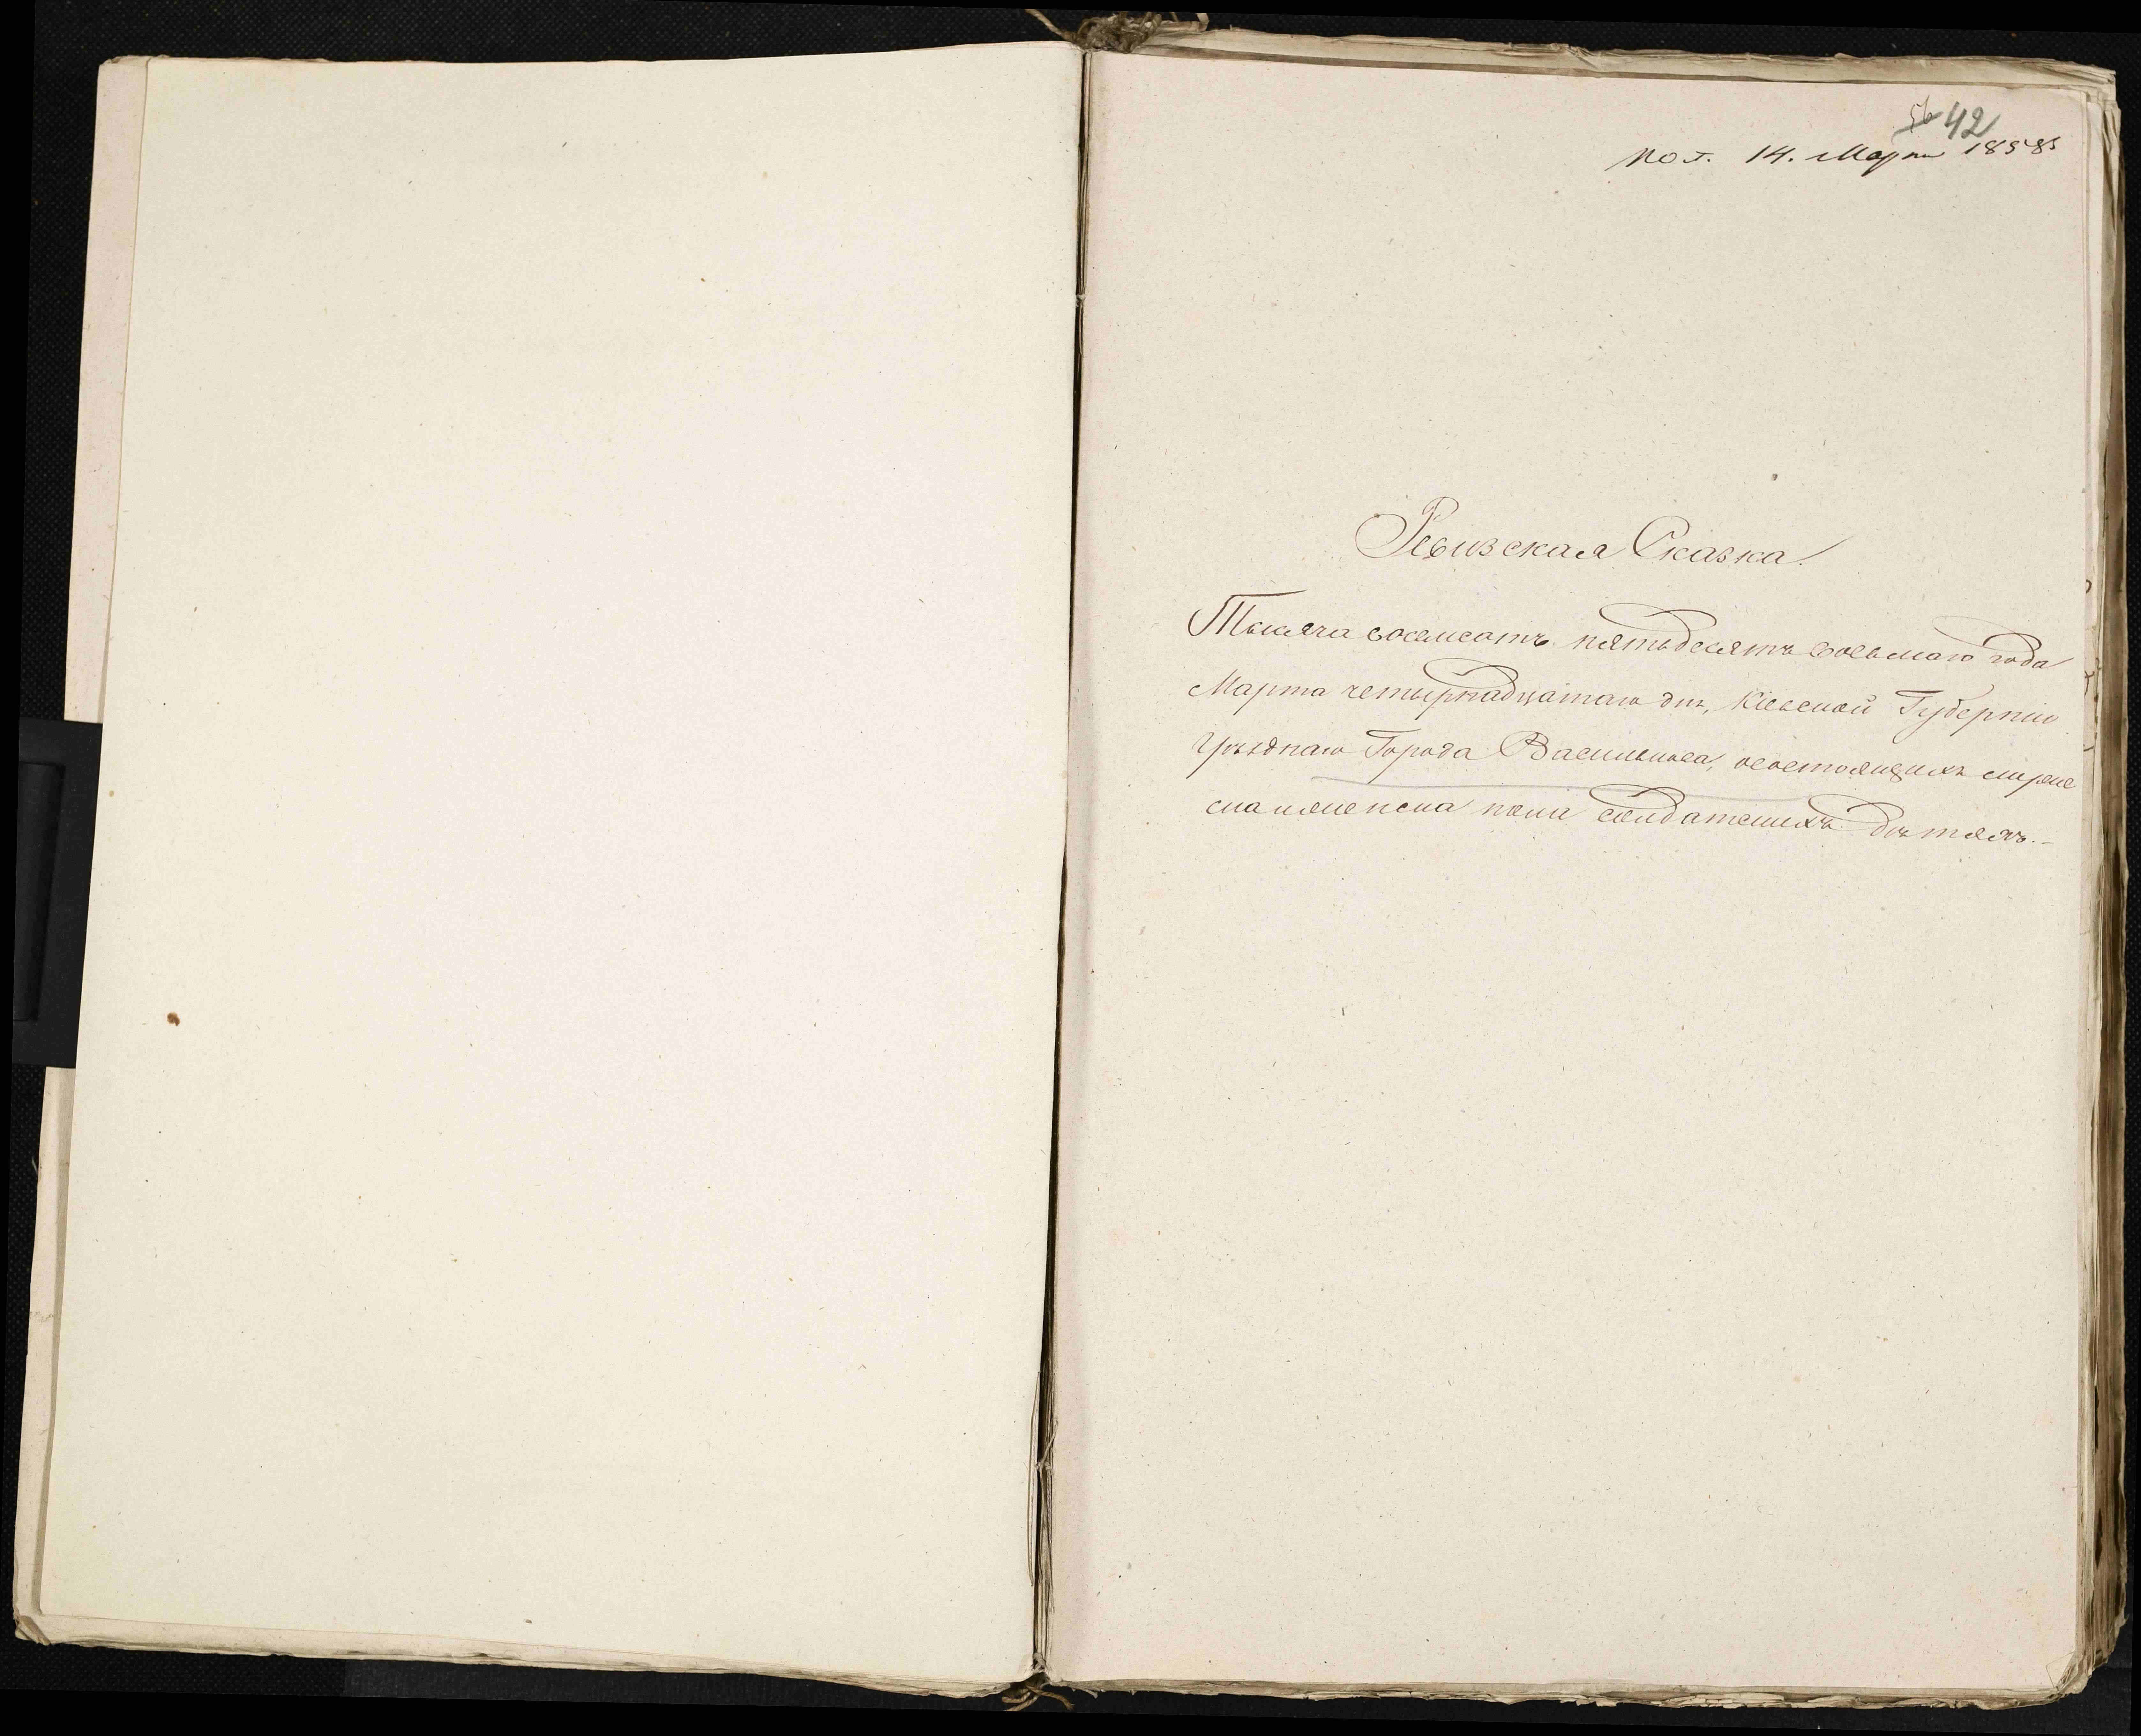 56 42
пол. 14. Марта 1858
Ревизская Сказка.
Тысяча восемсотъ пятьдесятъ восьмаго года
Марта четырнадцатаго дня, Кіевской Губерніи
Уѣзднаго Города Василькова, о состоящихъ
солдатскихъ дѣтяхъ.